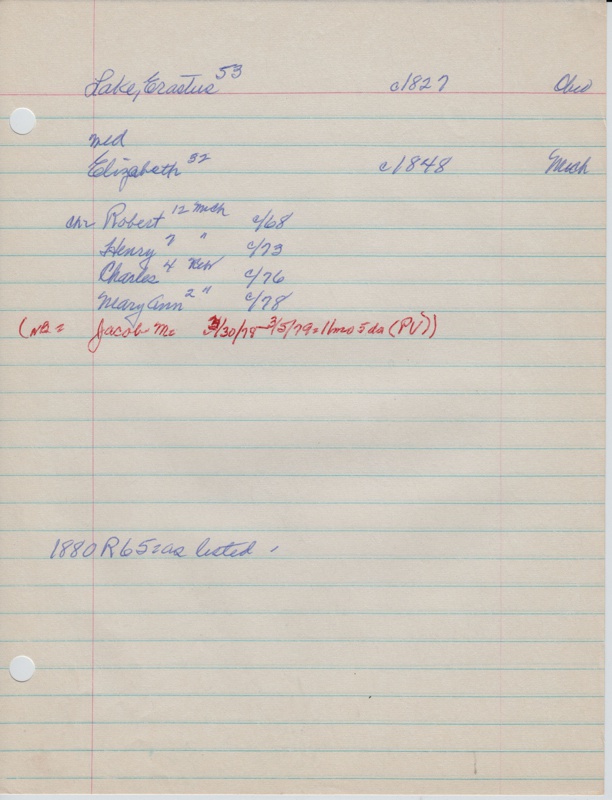 Lake, Erastus 53 c1827 Ohio
md
Elizabeth 32 c1848 Mich
chr Robert 12 Mich c/68
Henry 7 " c/73
Charles 4 Nebr c/76
Mary Ann 2 " c/78
(NB = Jacob M. 3/30/78 - 3/5/79 = 11mo 5da (PV))
1880 R65 = as listed